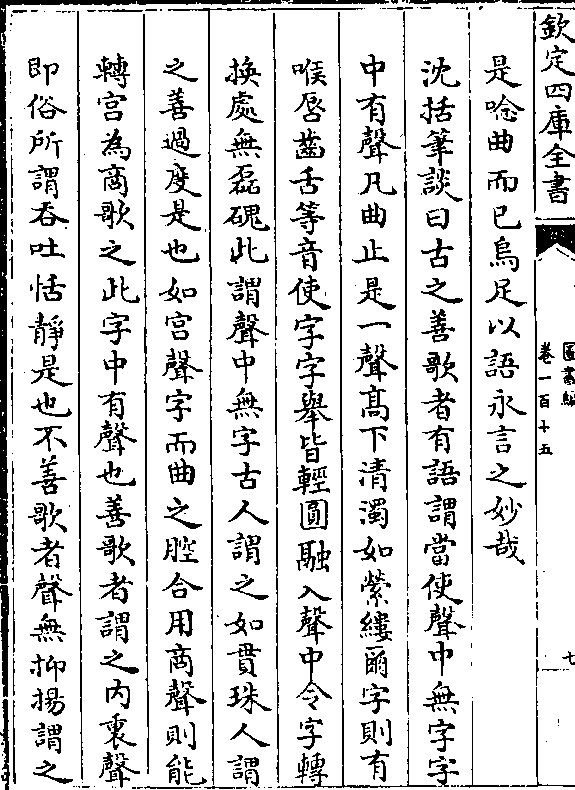 欽定四庫全書
圖書編
卷一百十五
七
是唸曲而已烏足以語永言之妙哉
沈括筆談曰古之善歌者有語謂當使聲中無字字
中有聲凡曲止是一聲髙下清濁如縈縷爾字則有
喉唇齒舌等音使字字舉皆輕圓融入聲中令字轉
換處無磊磈此謂聲中無字古人謂之如貫珠人謂
之善過度是也如宫聲字而曲之腔合用商聲則能
轉宫為商歌之此字中有聲也善歌者謂之内裏聲
即俗所謂吞吐恬靜是也不善歌者聲無抑揚謂之